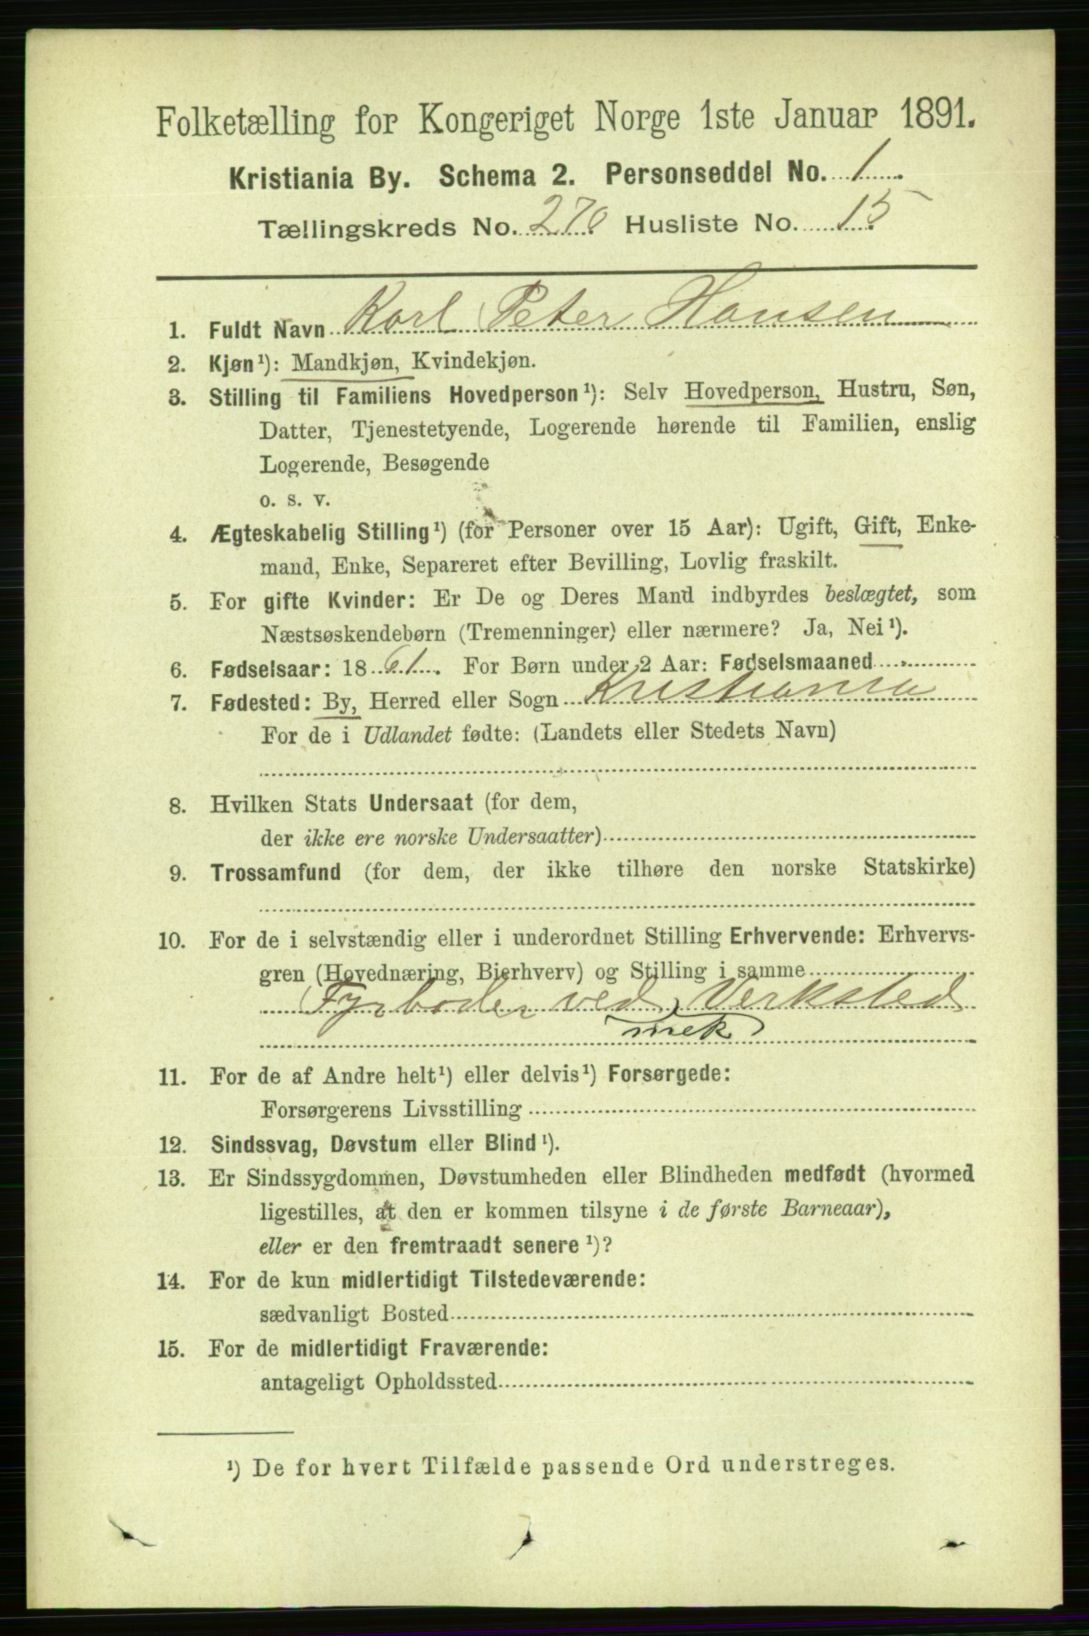 Folketælling for Kongeriget Norge 1ste Januar 1891.
Kristiania By. Schema 2. Personseddel No. 1
Tællingskreds No. 270 Husliste No. 15
1. Fuldt Navn Karl Peter Hansen
2. Kjøn¹): Mandkjøn, Kvindekjøn.
3. Stilling til Familiens Hovedperson¹): Selv Hovedperson, Hustru, Søn,
Datter, Tjenestetyende, Logerende hørende til Familien, enslig
Logerende, Besøgende
o. s. v.
4. Ægteskabelig Stilling¹) (for Personer over 15 Aar): Ugift, Gift, Enke-
mand, Enke, Separeret efter Bevilling, Lovlig fraskilt.
5. For gifte Kvinder: Er De og Deres Mand indbyrdes beslægtet, som
Næstsøskendebørn (Tremenninger) eller nærmere? Ja, Nei¹).
6. Fødselsaar: 1861. For Børn under 2 Aar: Fødselsmaaned
7. Fødested: By, Herred eller Sogn Kristiania
For de i Udlandet fødte: (Landets eller Stedets Navn)
8. Hvilken Stats Undersaat (for dem,
der ikke ere norske Undersaatter)
9. Trossamfund (for dem, der ikke tilhøre den norske Statskirke)
10. For de i selvstændig eller i underordnet Stilling Erhvervende: Erhvervs-
gren (Hovednæring, Bierhverv) og Stilling i samme
Fyrbøder ved Verksted
mek
11. For de af Andre helt¹) eller delvis¹) Forsørgede:
Forsørgerens Livsstilling
12. Sindssvag, Døvstum eller Blind¹).
13. Er Sindssygdommen, Døvstumheden eller Blindheden medfødt (hvormed
ligestilles, at den er kommen tilsyne i de første Barneaar),
eller er den fremtraadt senere¹)?
14. For de kun midlertidigt Tilstedeværende:
sædvanligt Bosted
15. For de midlertidigt Fraværende:
antageligt Opholdssted
¹) De for hvert Tilfælde passende Ord understreges.